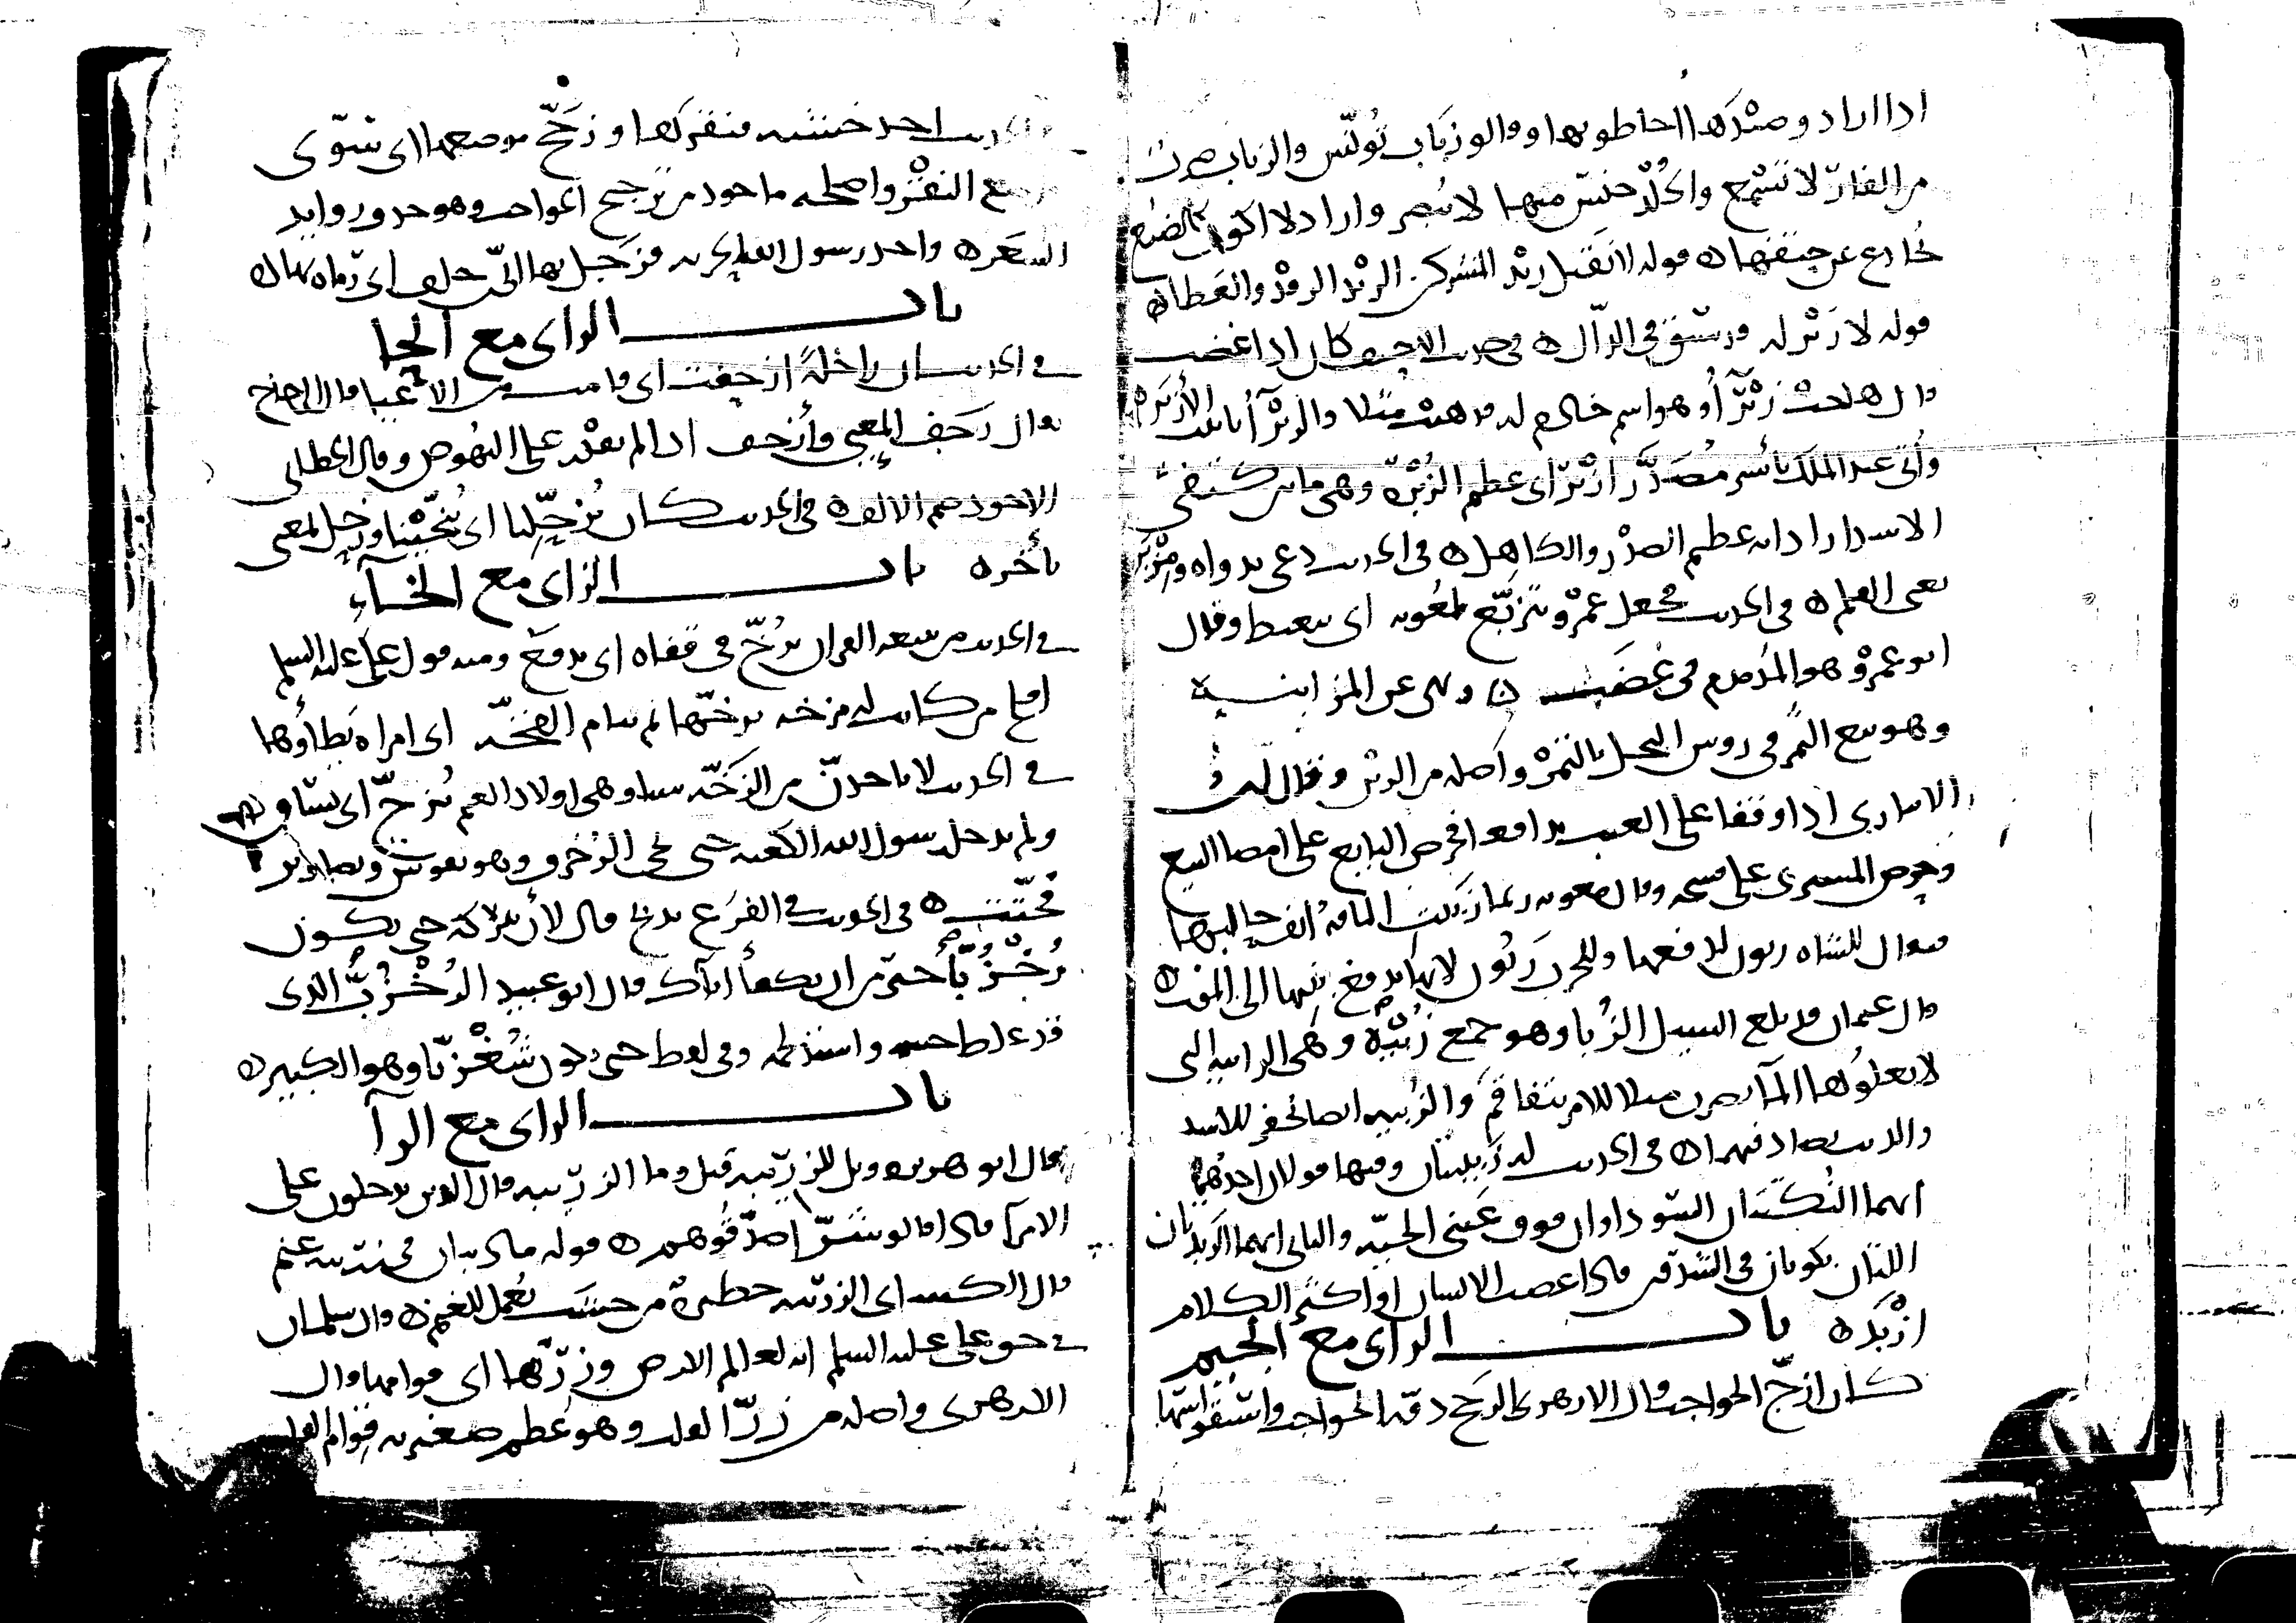 اذا ارادوا صيدها احاطوا بها وقالوا زباب تونس والزباب ضرب
من الفار لا تسمع والخلد جنس منها لا تبصر واراد لا اكون كالضبع
تخادع عن حتفها ه قوله لا نقبل زبد المشركين الزبد الرفد والعطا ه
قوله لا زبر له قد سبق في الدال ه في حديث الاحنف كان اذا غضب
قال هاجت زبرآ وهو اسم خادم له فذهبت مثلا والزبرآ تانيث الازبر ه
واتي عبد الملك باسير مصدر ازبر اي عظيم الزبرة وهي ما بين كتفي
الاسد ارادانه عظيم الصدر والكاهل ه في الحديث دعي بدواه ومزبر
يعني القلم ه في الحديث فجعل عمرو يتزبع لمعويه اي يتغيظ وقال
ابو عمرو هو المدمدم في غضب ه ونهي عن المزابنة
وهو بيع الثمر في روس النخل بالتمر واصله من الزبن وقال ابن
الانباري اذا وقفا على العيب تدافعا فحرص البايع على امضا البيع
وحرص المشتري على فسخه وقال معويه ربما زبنت الناقه انف حالبها
فيقال للناقه زبون لدفعها وللحرب زبون لانها تدفع بنيها الى الموت ه
قال عثمان قد بلغ السيل الزبا وهو جمع زبية وهي الرابيه التي
لا يعلوها المآ يضرب مثلا للامر يتفاقم والزبيه ايضا تحفر للاسد
والذيب يصاد فيهما ه في الحديث له زبيبتان وفيها قولان احدهما
انهما النكتتان السوداوان فوق عيني الحية والثاني انهما الزبدتان
اللتان يكونان في الشدقين فاذا غضب الانسان او اكثر الكلام
ازبد ه باب الزاي مع الجيم
كان ازج الحواجب قال الازهري الزجج دقه الحواجب واستقواسها
الحديث اخذ خشبه فنقرها وزجج موضعها اي سوى
موضع النقر واصلحه ماخوذ من تزجيج الحواجب وهو حذف زوايد
الشعر ه واخذ رسول الله الحربه فزجل بها ابي بن خلف اي رماه بها ه
باب الزاي مع الحا
في الحديث ان راحلة ازحفت اي قامت من الاعيا قال الزجاج
يقال زحف المعيي وازحف اذا لم يقدر على النهوض وقال الخطابي
الاجود ضم الالف ه في الحديث كان يزحلنا اي ينحينا وزحل بمعنى
تاخر ه باب الزاي مع الخآء
في الحديث من يتبعه القران يزخ في قفاه اي يدفع ومنه قول علي عليه السلم
افلح من كانت له مزخه يزخها ثم ينام الفخه اي امراه يطاوها
في الحديث لا تاخذن من الزخه شيا وهي اولاد الغنم تزج اي تساق ه
ولم يدخل رسول الله الكعبه حتى نحي الزخرف وهو نقوش وتصاوير
فحتت ه في الحديث في الفرع يذبح قال لان تتركه حتى يكون
زخزبا خير من ان تكفا اناك قال ابو عبيد الزخزب الذي
قد غلظ جسمه واشتد لحمه وفي لفظ حتى يكون شغزبا وهو الكبير ه
باب الزاي مع الرآ
قال ابو هريره ويل للزربيه قيل وما الزربيه قال الذين يدخلون على
الامرآ فاذا قالوا شرا صدقوهم ه قوله فاذا بيان في زربيه غنم
قال الكسائي الزربيه حظيرة من خشب تعمل للغنم ه وقال سلمان
في حق علي عليه السلم انه لعالم الارض وزرها اي قوامها وقال
الازهري واصله من زر القلب وهو عظم صغير به قوام القلب